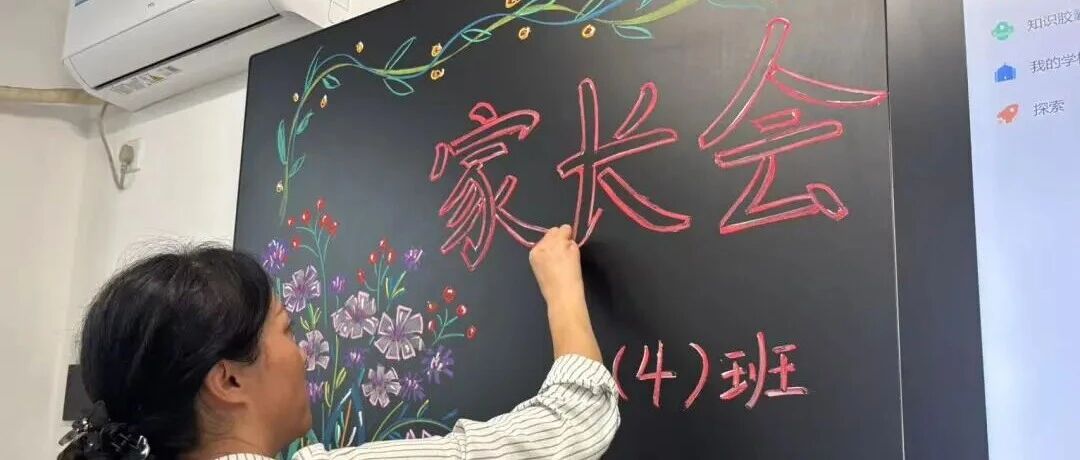 家长会
(4)班
知识胶囊
我的学校
探索